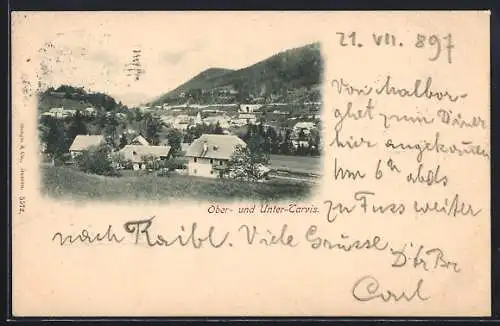 21. VII. 897
Von Malbor-
ghet zum Diner
hier angekommen
Um 6h abds
zu Fuss weiter
Ober- und Unter-Tarvis.
nach Raibl. Viele Grüsse
Carl
Stengel & Co., Dresden 5572.